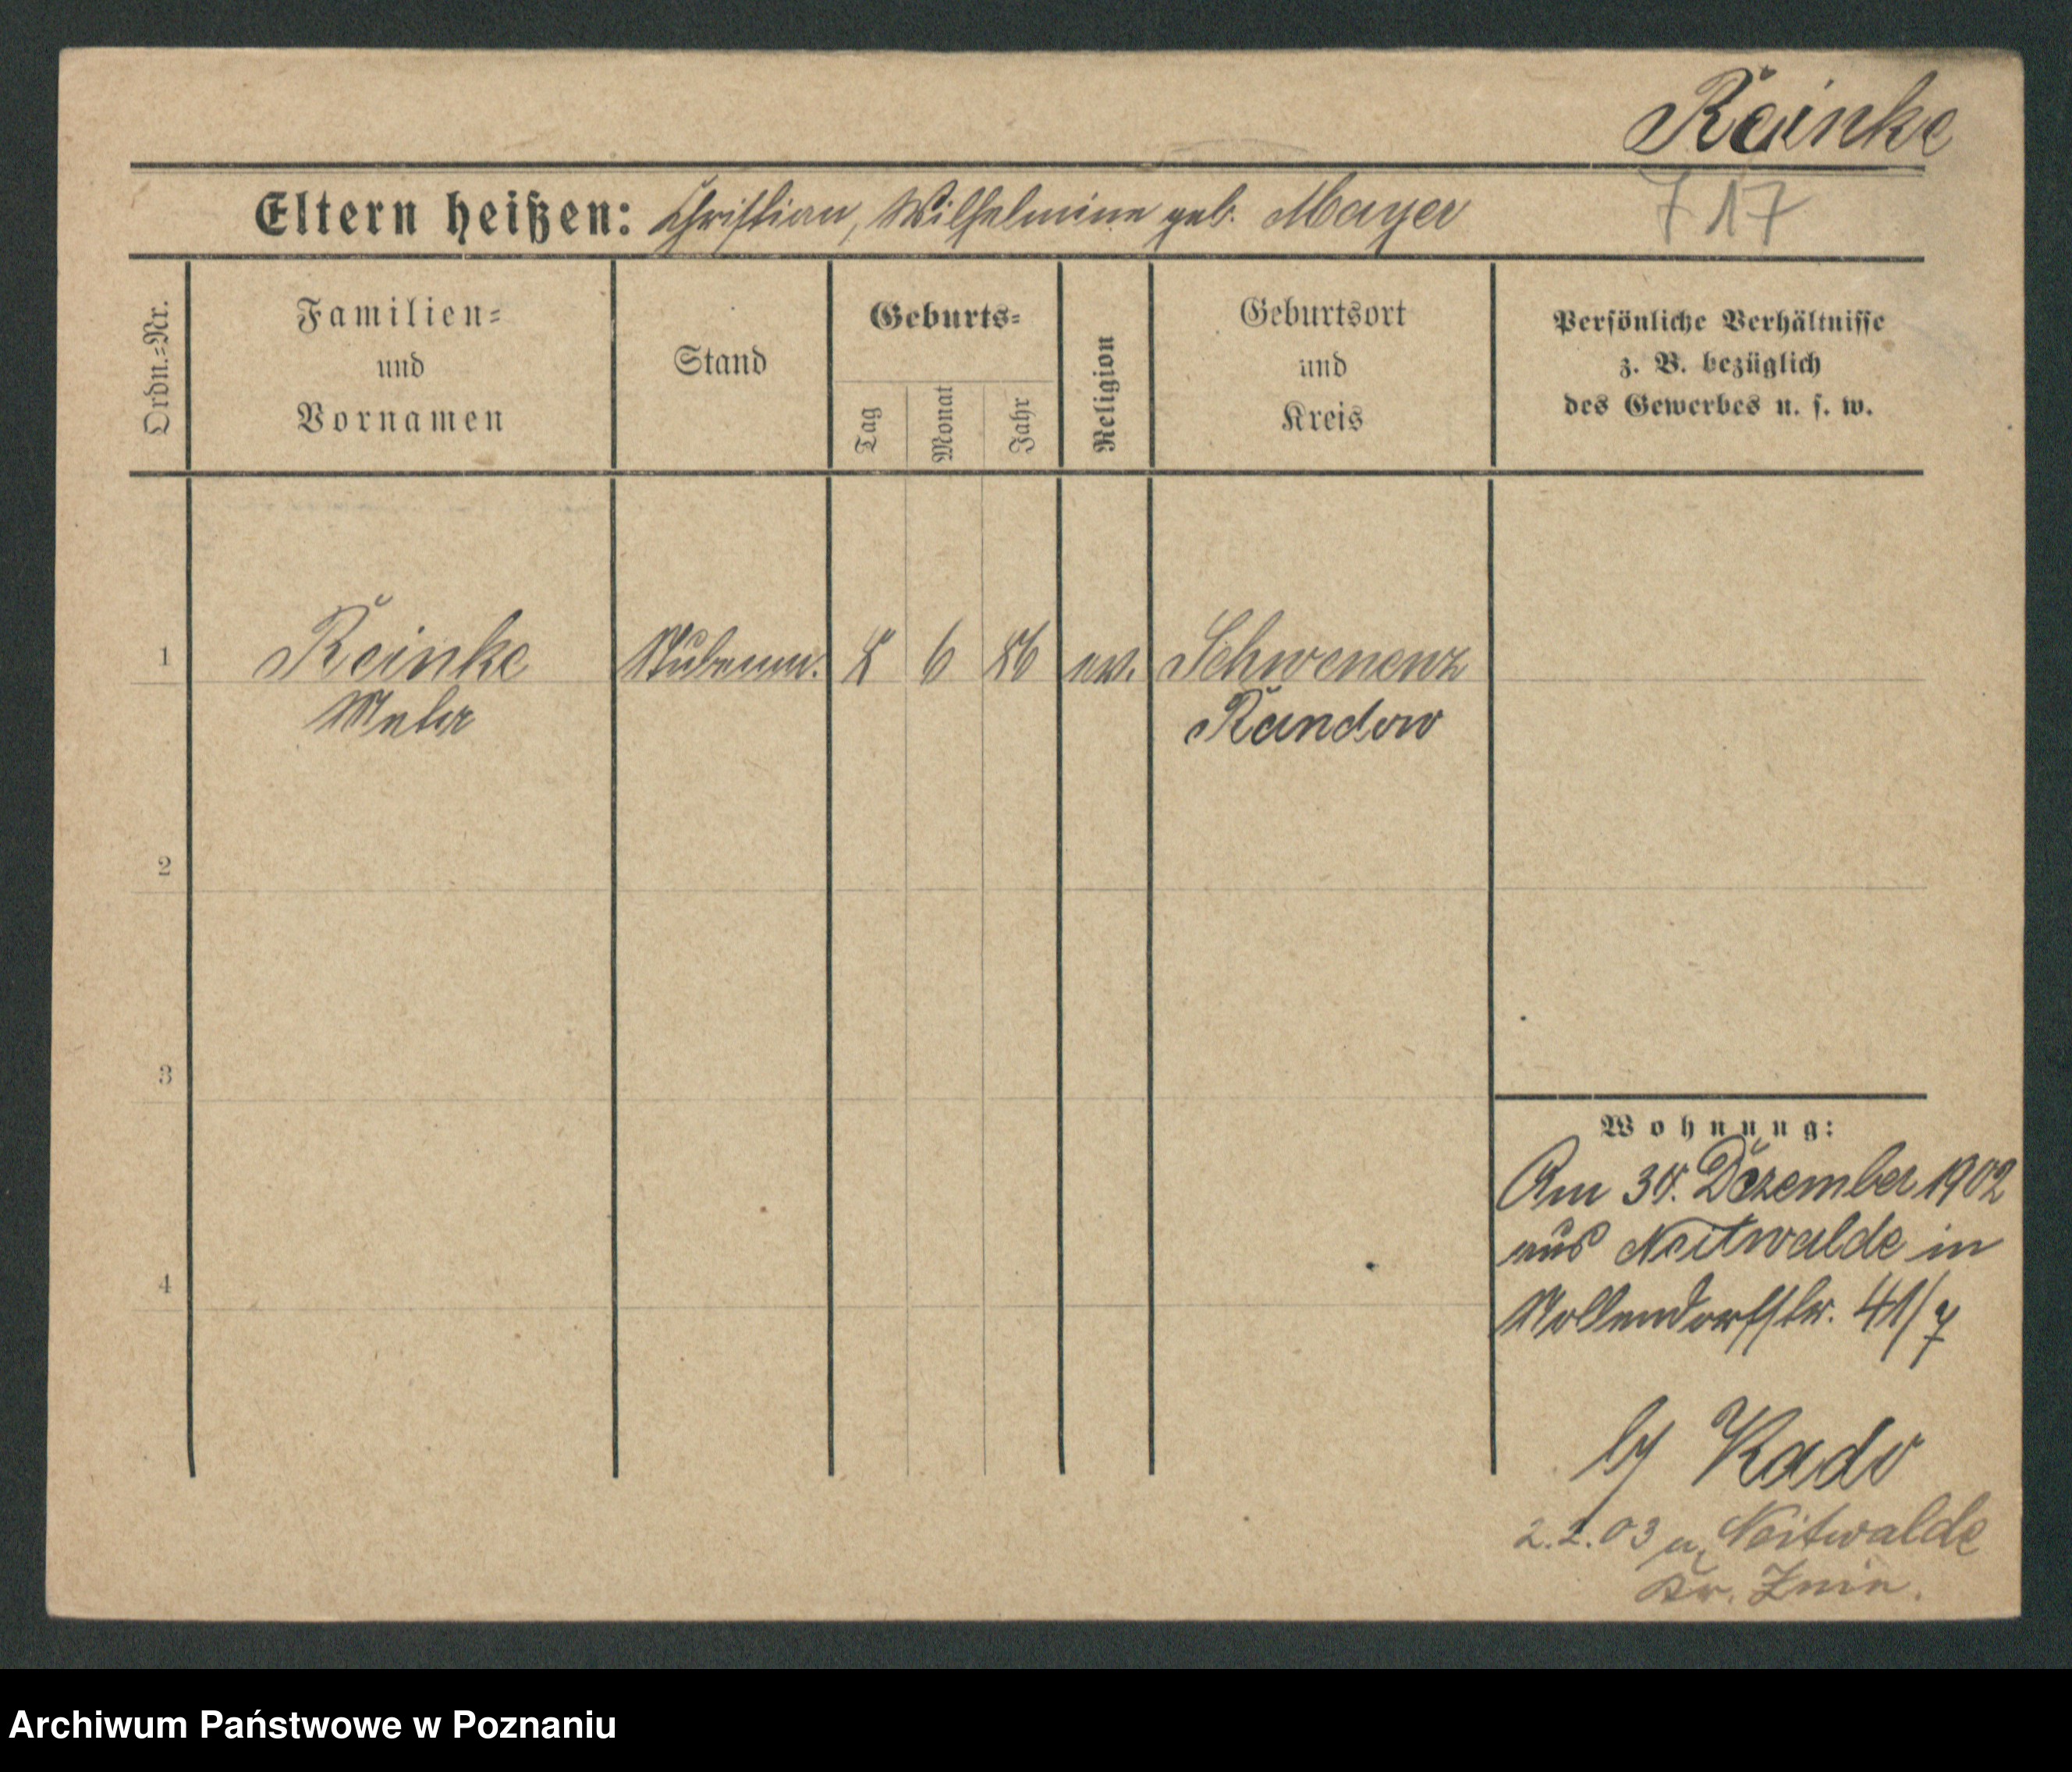 Reinke
717
Eltern heißen: Christian, Wilhelmine geb. Mayer
Ordn.-Nr.
Familien-
und
Vornamen
Stand
Geburts-
Tag
Monat
Jahr
Religion
Geburtsort
und
Kreis
Persönliche Verhältnisse
z. B. bezüglich
des Gewerbes u. s. w.
1 Reinke 6 86 ev. Schwenenz
Meta Randow
2
3
4
Wohnung:
Am 30. Dezember 1902
aus Neitwalde in
Nollendorfstr. 41/7
by Kado
2.2.03 n. Neitwalde
Kr. Znin.
Archiwum Państwowe w Poznaniu